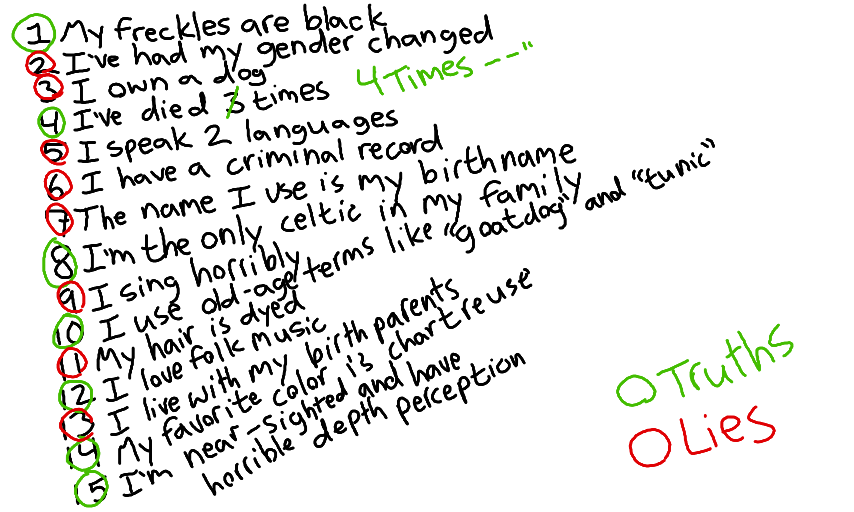 1 My freckles are black
2 I've had my gender changed
3 I own a dog
4 I've died 3 times 4 Times --"
5 I speak 2 languages
6 I have a criminal record
7 The name I use is my birthname
8 I'm the only celtic in my family
9 I sing horribly
10 I use old-age terms like "goatdog" and "tunic"
11 My hair is dyed
12 I love folk music
13 I live with my birth parents
14 My favorite color is chartreuse
15 I'm near-sighted and have
horrible depth perception
Truths
Lies